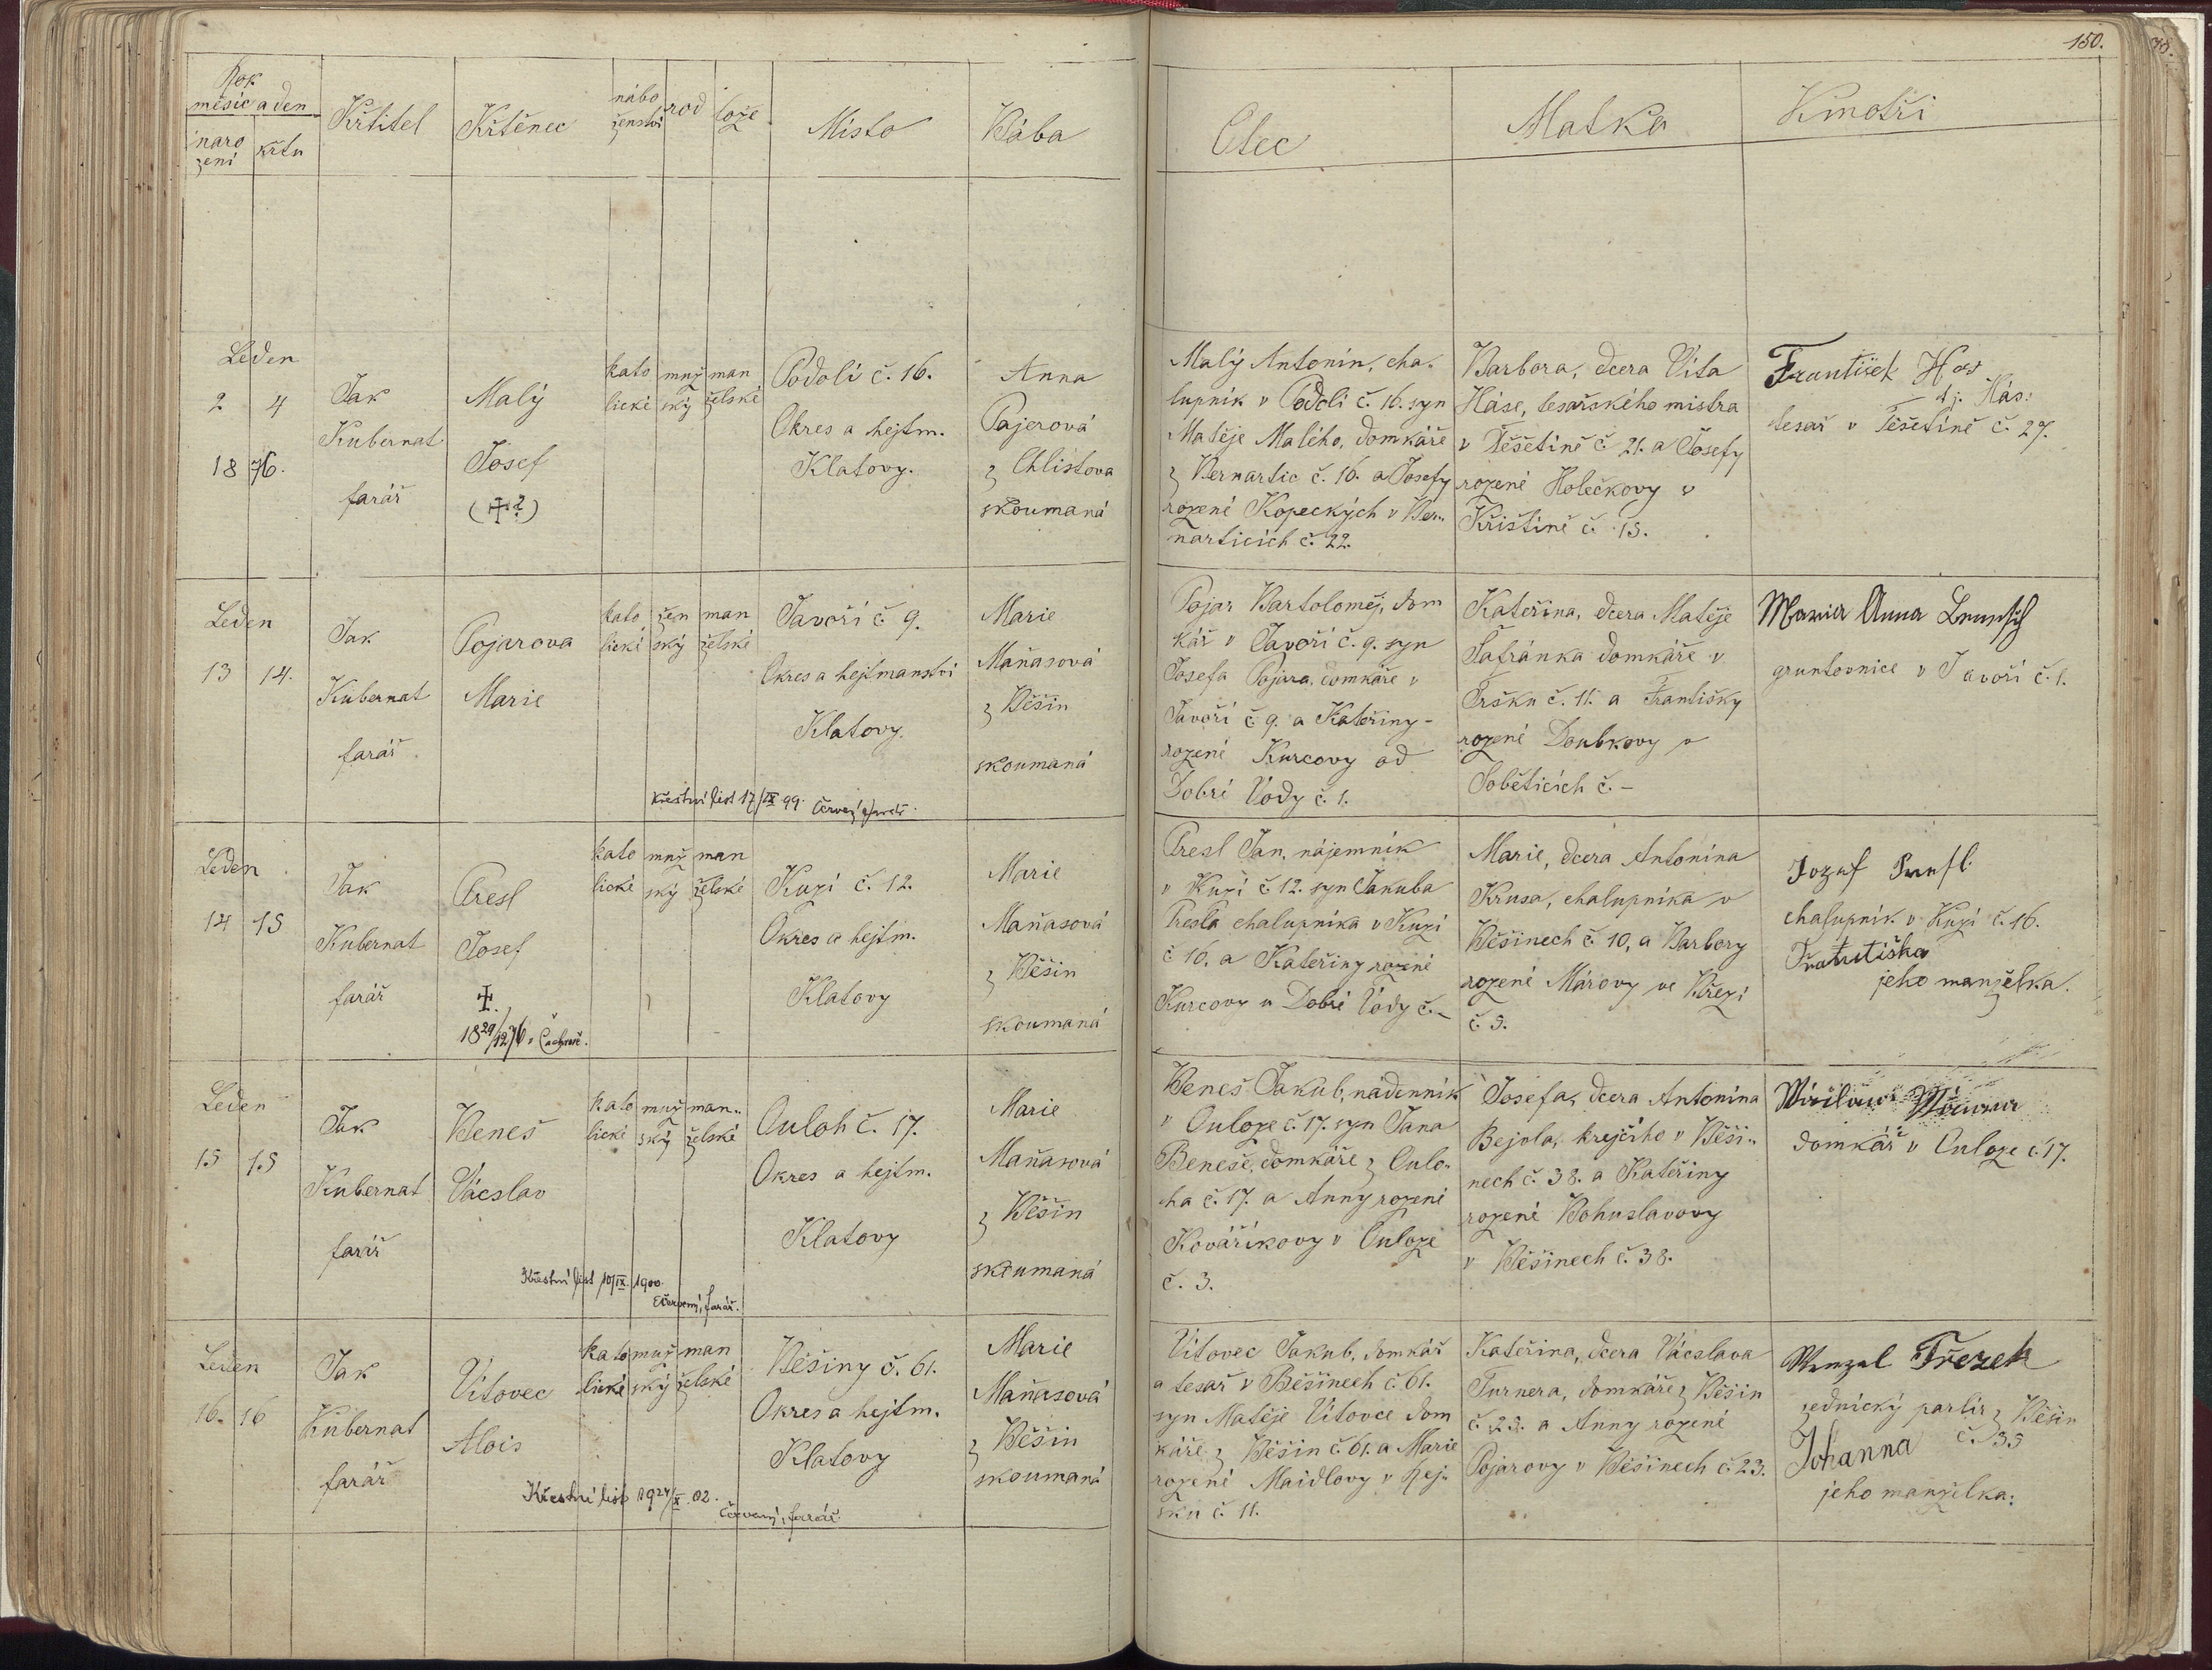 150.
Rok
měsíc a den
naro
zení
křtu
Křtitel
Křtěnec
nábo
ženství
rod
lože
Místo
Bába
Otec
Matka
Kmotři
Leden
2 4
1876.
Jak
Kubernat
farář
Malý
Josef
(✝?)
kato
lické
muž
ský
man
želské
Podolí č. 16.
Okres a hejtm.
Klatovy.
Anna
Pajerová
z Chlistova
skoumaná
Malý Antonín, cha-
lupník v Podolí č. 16. syn
Matěje Malého, domkáře
z Bernartic č. 16. a Josefy
rozené Kopeckých v Ber-
narticích č. 22.
Barbora, dcera Víta
Háse, tesařského mistra
v Těšetíně č. 21. a Josefy
rozené Holečkovy v
Křištíně č. 15.
František Has
tj. Hás:
tesař v Těšetíně č. 27.
Leden
13 14.
Jak
Kubernat
farář
Pojarova
Marie
kato
lické
žen
ský
man
želské
Javoří č. 9.
Okres a hejtmanství
Klatovy.
Marie
Maňasová
z Běšin
skoumaná
křestní list 17/IX 99. Červený farář.
Pojar Bartoloměj, dom
kář v Javoří č. 9. syn
Josefa Pojara, domkáře v
Javoří č. 9. a Kateřiny
rozené Kurcovy od
Dobré Vody č. 1.
Kateřina, dcera Matěje
Šafránka domkáře v
Trsku č. 11. a Františky
rozené Doubkovy v
Soběticích č. –
Maria Anna
gruntovnice v Javoří č. 1.
Leden
14 15
Jak
Kubernat
farář
Presl
Josef
✝.
18 29/12 76 v Čachrově.
kato
lické
muž
ský
man
želské
Kuzi č. 12.
Okres a hejtm.
Klatovy
Marie
Maňasová
z Běšin
skoumaná
Presl Jan, nájemník
v Kuzi č. 12. syn Jakuba
Presla chalupníka v Kuzi
č. 16. a Kateřiny rozené
Kurcovy u Dobré Vody č. –
Marie, dcera Antonína
Krusa, chalupníka v
Běšinech č. 10, a Barbory
rozené Márovy ve Březí
č. 9.
Jozef Presl
chalupník v Kuzi č. 16.
Františka
jeho manželka.
Leden
15 15
Jak
Kubernat
farář
Beneš
Václav
kato
lické
muž
ský
man-
želské
Ouloh č. 17.
Okres a hejtm.
Klatovy
Marie
Maňasová
z Běšin
skoumaná
Křestní list 10/IX. 1900.
Červený, farář.
Beneš Jakub, nádenník
v Ouloze č. 17. syn Jana
Beneše, domkáře z Oulo-
ha č. 17. a Anny rozené
Kováříkovy v Ouloze
č. 3.
Josefa, dcera Antonína
Bejola, krejčího v Běši-
nech č. 38. a Kateřiny
rozené Bohuslavovy
v Běšinech č. 38.
domkář v Ouloze č. 17.
Leden
16. 16
Jak
Kubernat
farář
Vítovec
Alois
kato
lické
muž
ský
man
želské
Běšiny č. 61.
Okres a hejtm.
Klatovy
Marie
Maňasová
z Běšin
skoumaná
Křestní list 1924/X. 02.
Červený, farář.
Vítovec Jakub, domkář
a tesař v Běšinech č. 61.
syn Matěje Vítovce dom
káře z Běšin č. 61. a Marie
rozené Maidlovy v Rej-
sku č. 11.
Kateřina, dcera Václava
Turnera, domkáře z Běšin
č. 23. a Anny rozené
Pojarovy v Běšinech č. 23.
Wenzel Třezek
zednický parlíř z Běšin
č. 35
Johanna
jeho manželka: